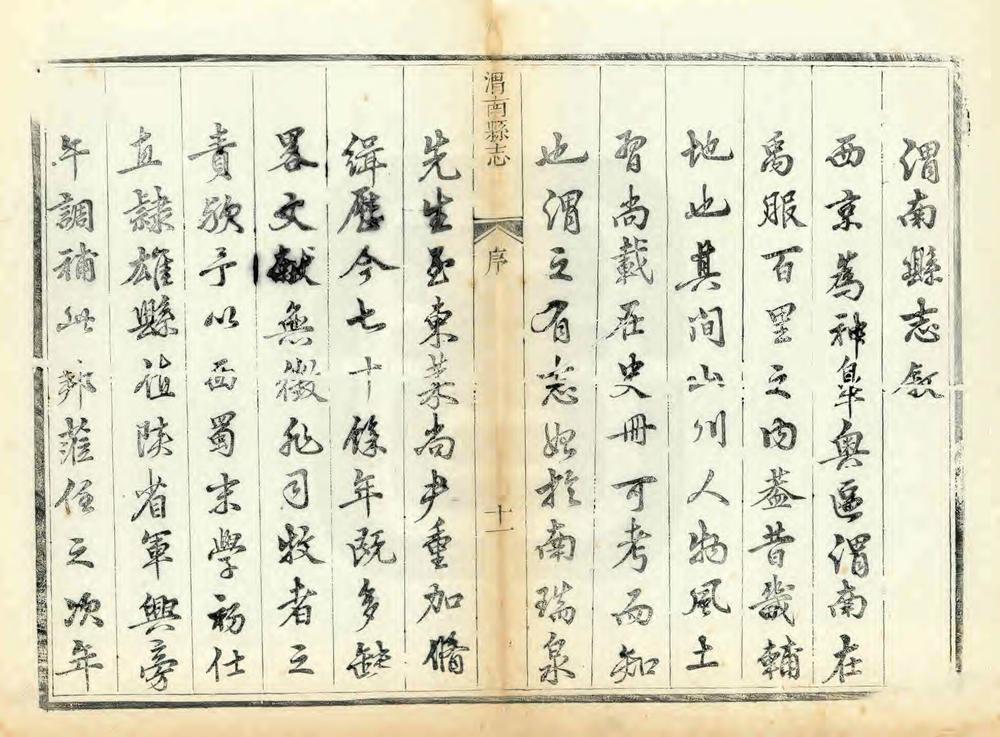 渭南縣志敘
西京為神臯奧區渭南在
禹服百里之內葢昔畿輔
地也其間山川人物風土
習尚載在史冊可考而知
也渭之有志始於南瑞泉
渭南縣志
序
十一
先生至東萊尚尹重加脩
緝歷今七十餘年既多缺
畧文獻無徵非司牧者之
責歟予以西蜀末學初仕
直隸雄縣值陝省軍興旁
午調補此邦蒞任之次年